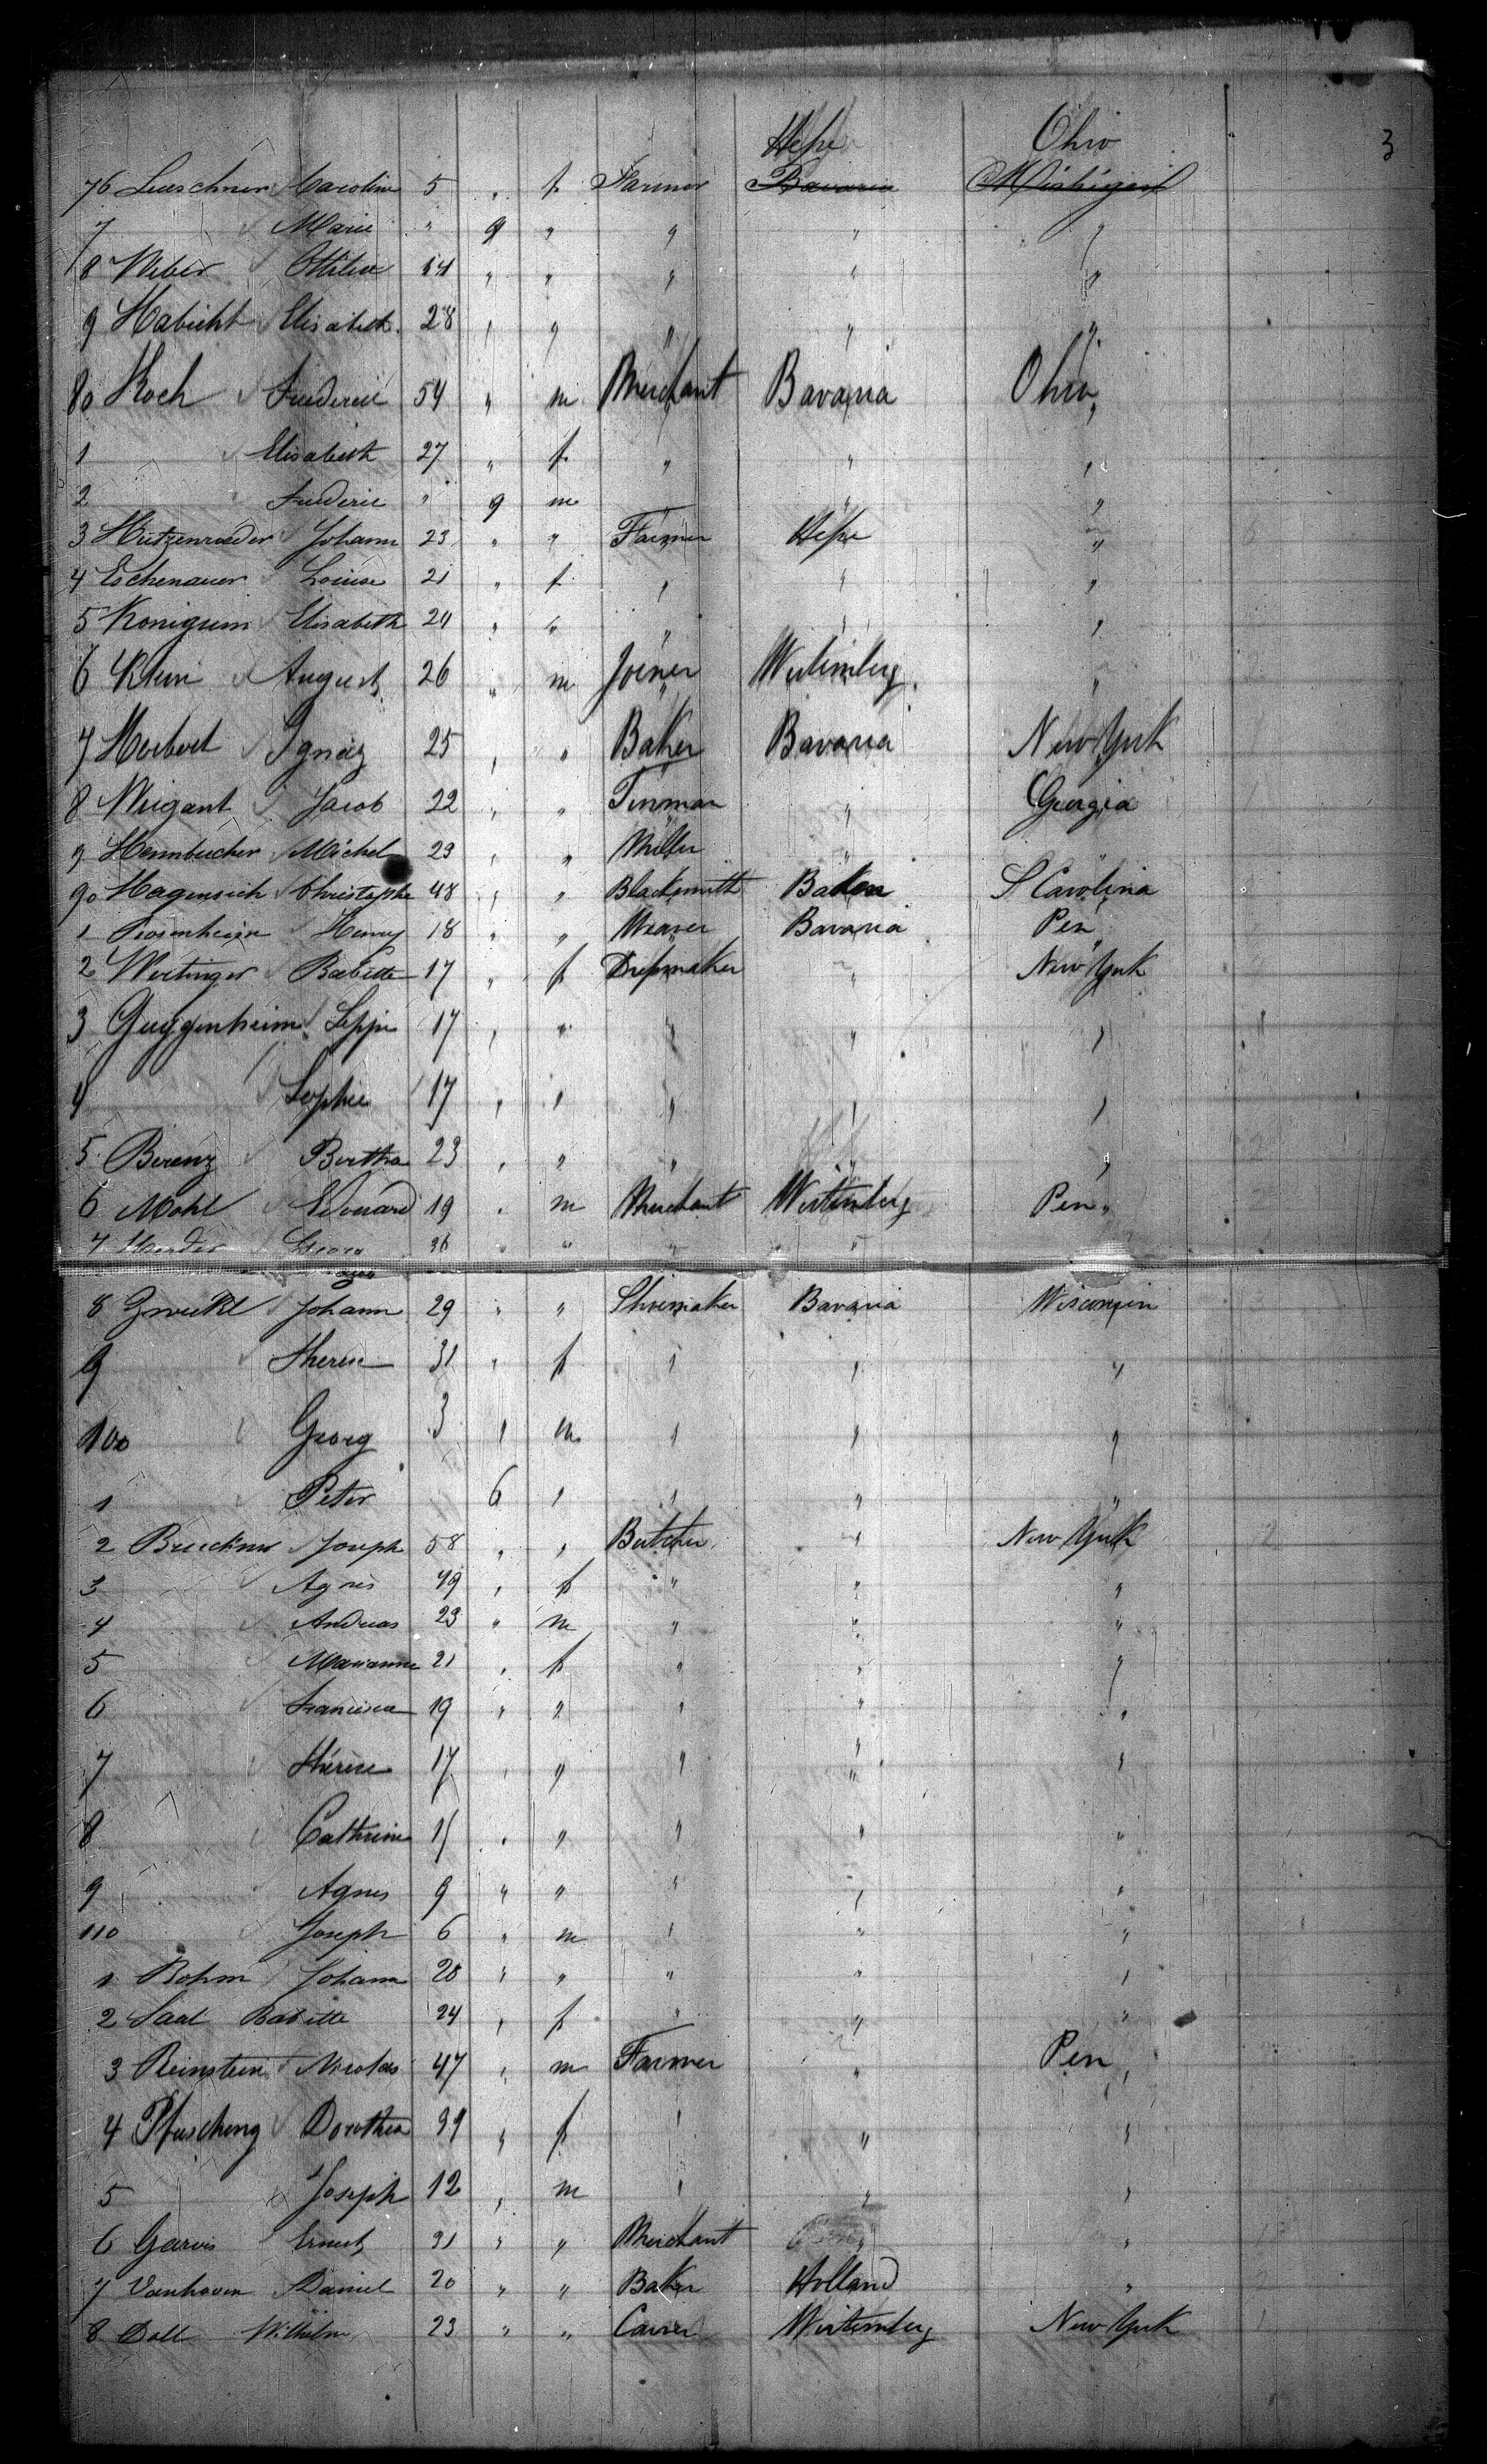 3
Hesse Ohio
76 Leuschner Caroline 5 " f Farmer Bavaria Michigan
7 Marie " 9 " " " "
8 Weber Ottilie 14 " " " " "
9 Habicht Elisabeth 28 " " " " "
80 Koch Frederic 54 " m Merchant Bavaria Ohio
1 Elisabeth 27 " f " " "
2 Frederic " 9 m " " "
3 Johann 23 " " Farmer Hesse "
4 Eschenauer Louise 21 " f " " "
5 Elisabeth 24 " " " " "
6 Klein August 26 " m Joiner Wurtemberg "
7 Herbert Ignaz 25 " " Baker Bavaria New York
8 Weigant Jacob 22 " " Tinman " Georgia
9 Hennbucher Michel 23 " " Miller " "
90 Christophe 48 " " Blacksmith Baden S Carolina
1 Rosenheim Henry 18 " " Weaver Bavaria Pen
2 Wertinger Babette 17 " f Dressmaker " New York
3 Guggenheim Seppi 17 " " " " "
4 Sophie 17 " " " " "
5 Berenz Bertha 23 " " " " "
6 Mohl Edouard 19 " m Merchant Wurtemberg Pen
7 Georg 36 " " " " "
8 Johann 29 " " Shoemaker Bavaria Wisconsin
9 Therese 31 " f " " "
100 Georg 3 " m " " "
1 Peter 6 " " " "
2 Bruckner Joseph 58 " " Butcher " New York
3 Agnes 49 " f " " "
4 Andreas 23 " m " " "
5 Marianne 21 " f " " "
6 Francisca 19 " " " " "
7 Therese 17 " " " " "
8 Cathrine 11 " " " " "
9 Agnes 9 " " " " "
110 Joseph 6 " m " " "
1 Bohm Johann 28 " " " " "
2 Saal Babette 24 " f " " "
3 Reinstein Nicolas 47 " m Farmer " Pen
4 Dorothea 39 " f " " "
5 Joseph 12 " m " " "
6 Garvis Ernest 31 " " Merchant "
7 Vanhoven Daniel 20 " " Baker Holland "
8 Doll Wilhelm 23 " " Carver Wurtemberg New York